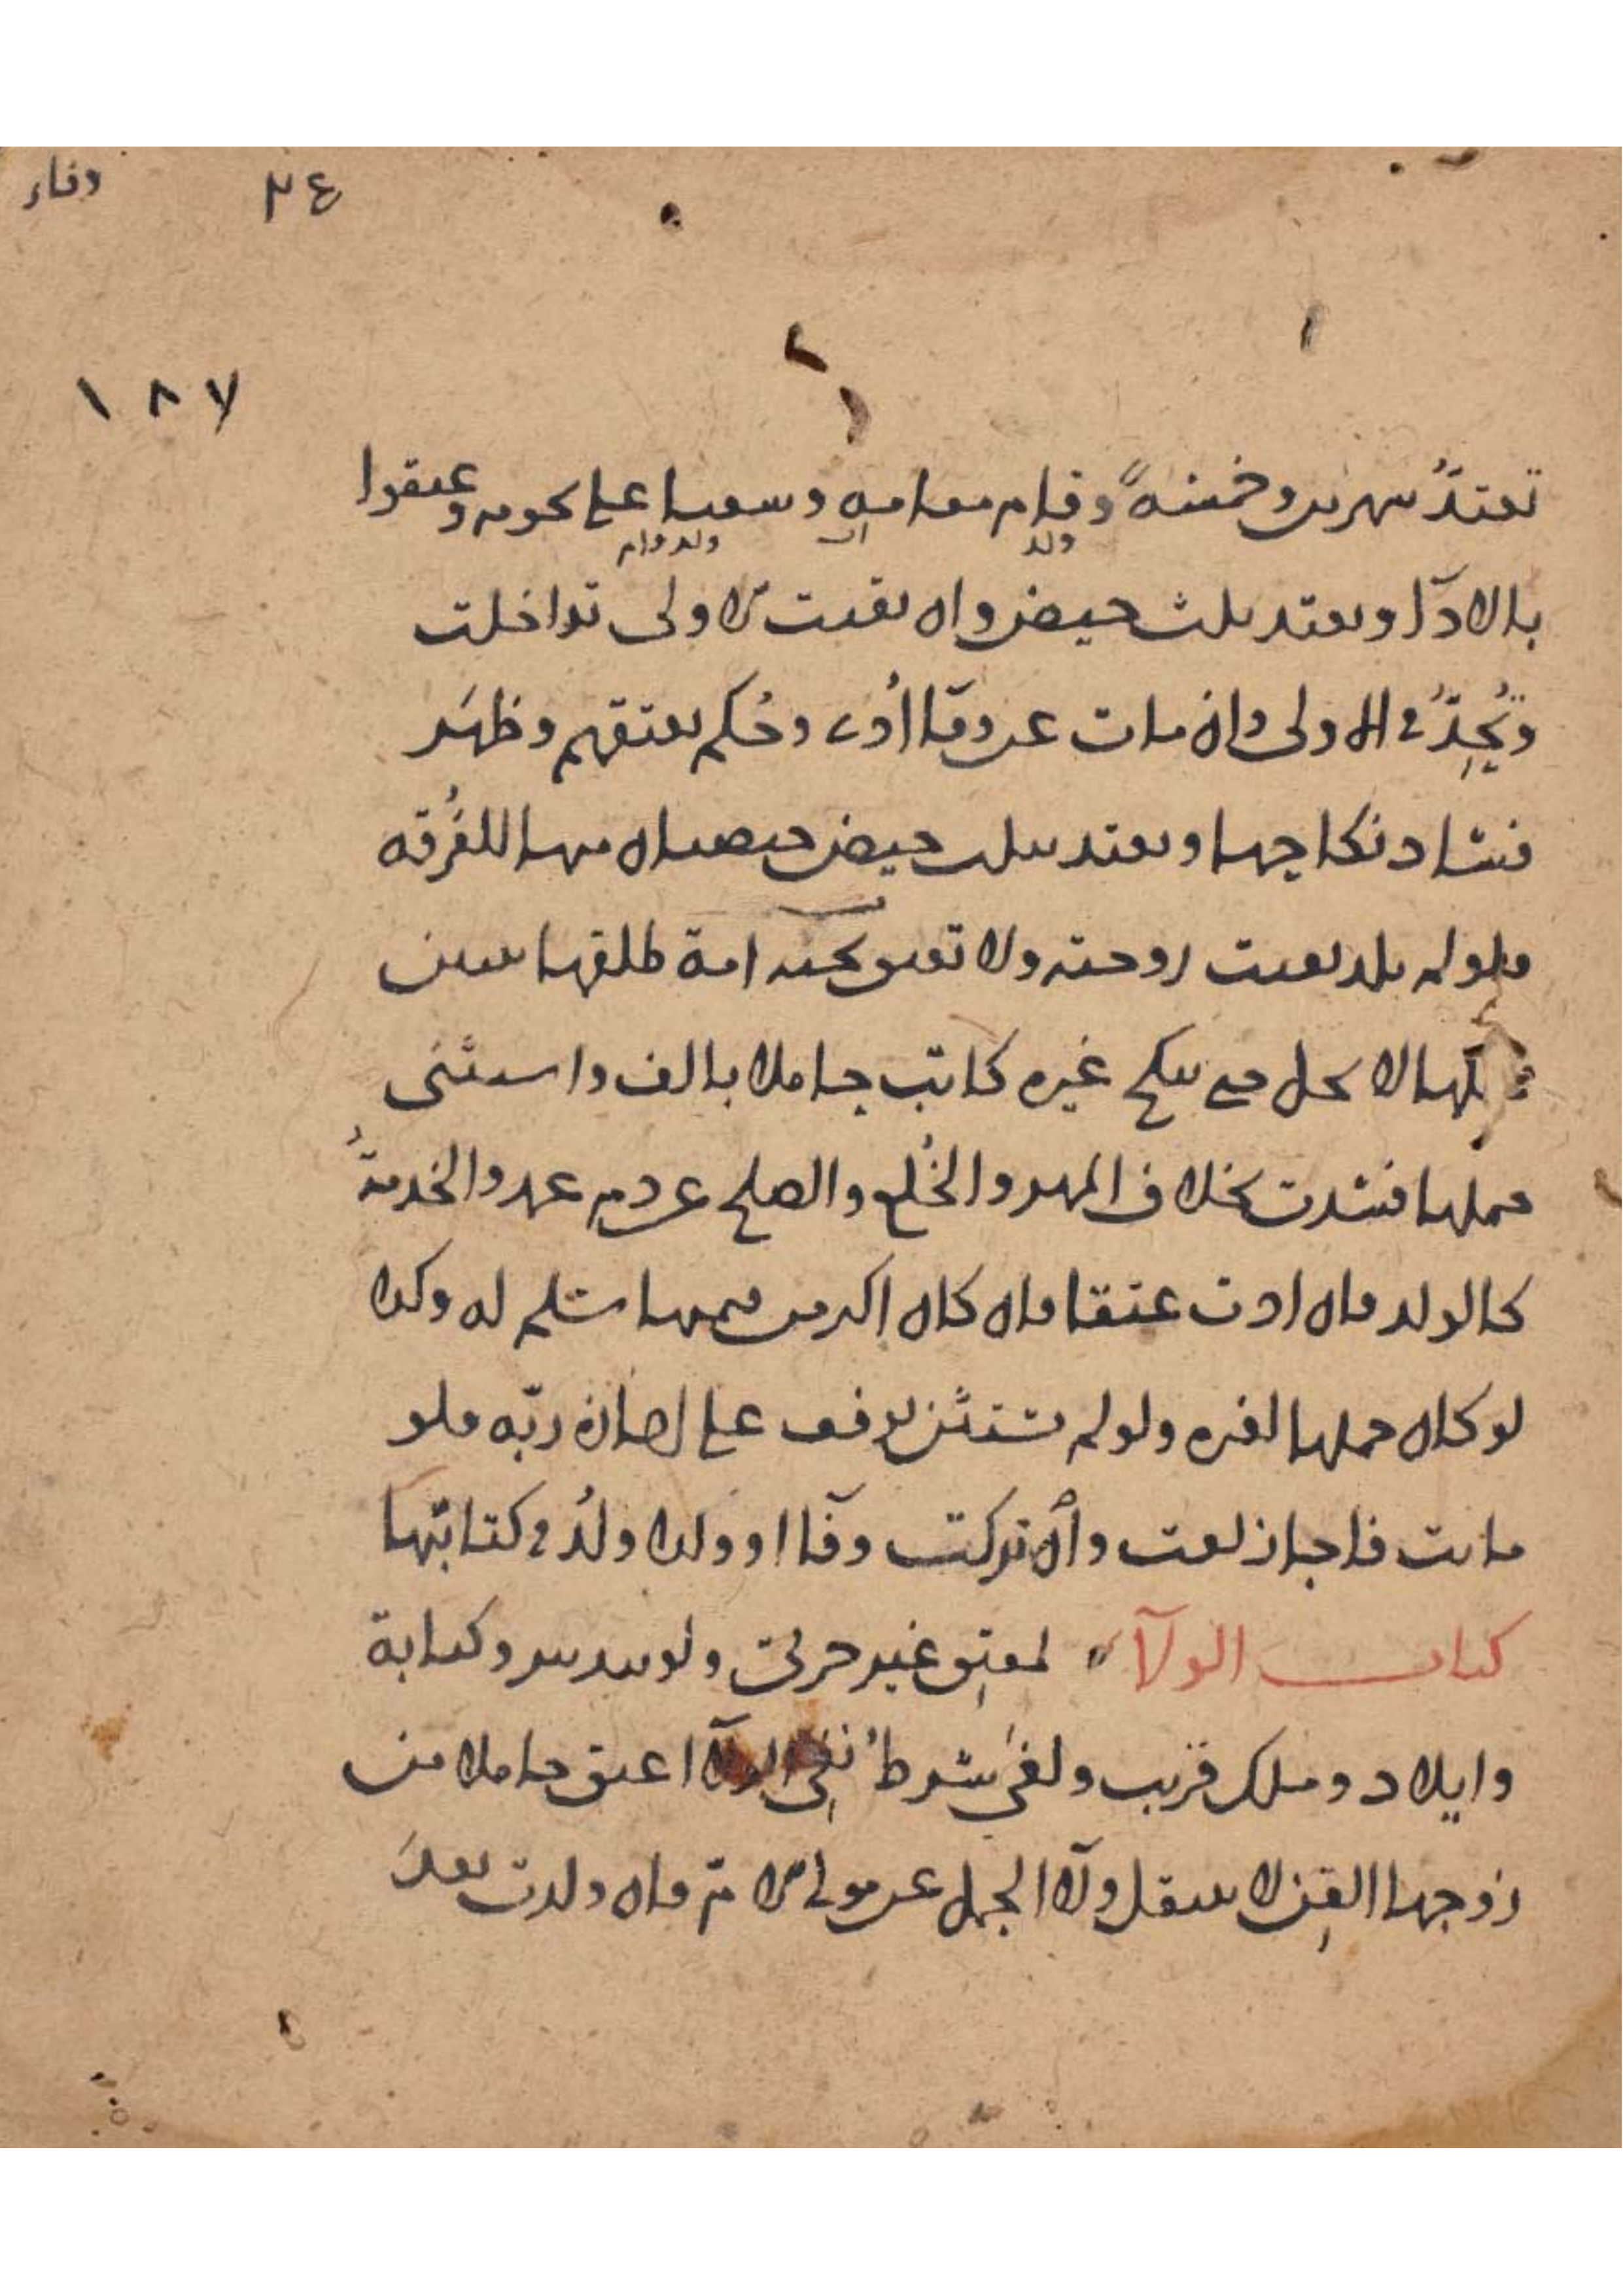 وفاء ٣٤
١٨٧
تعتدُّ شهرين وخمسةً وقام مقامه وسعيا على نجومه وعتقوا
ولد اب ولد وام
بالادآ وتعتد بثلث حيض وان بقيت الاولى تداخلت
وتُحِدُّ في الاولى وان مات عن وفآ أُدى وحُكم بعتقهم وظهَر
فساد نكاحها وتعتد بثلث حيض حيضتان منها للفُرقة
فلو لم تلد بقيت زوجته ولا تعتق تحته امة طلقها ثنتين
لها لا تحل حتى ينكح غيره كاتب حاملا بالف واستثنى
حملها فسدت بخلاف المهر والخُلع والصلح عن دم عمد والخدمةُ
كالولد فان ادت عتقا فان كان اكثر من قيمتها سلم له وكذا
لو كان حملها لغيره ولو لم يستثن توقف على اجازة ربّه فلو
ماتت فاجاز لغت وان تركت وفآ او ولدا ولدُ في كتابتها
كتاب الولآء لمعتِق غير حربي ولو بتدبير وكتابة
وايلاد وملك قريب ولغى شرطُ نفي الولآ اعتق حاملا من
زوجها القِن لا ينتقل ولآ الحمل عن موالي الام فان ولدت بعدَ